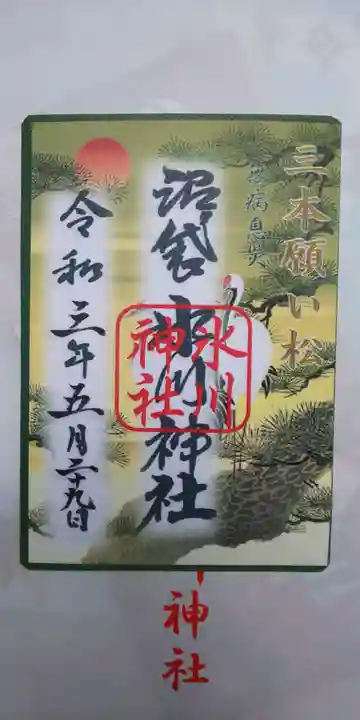 三本願い松
無病息災
沼袋 氷川神社
氷川
神社
令和三年五月二十九日
神社